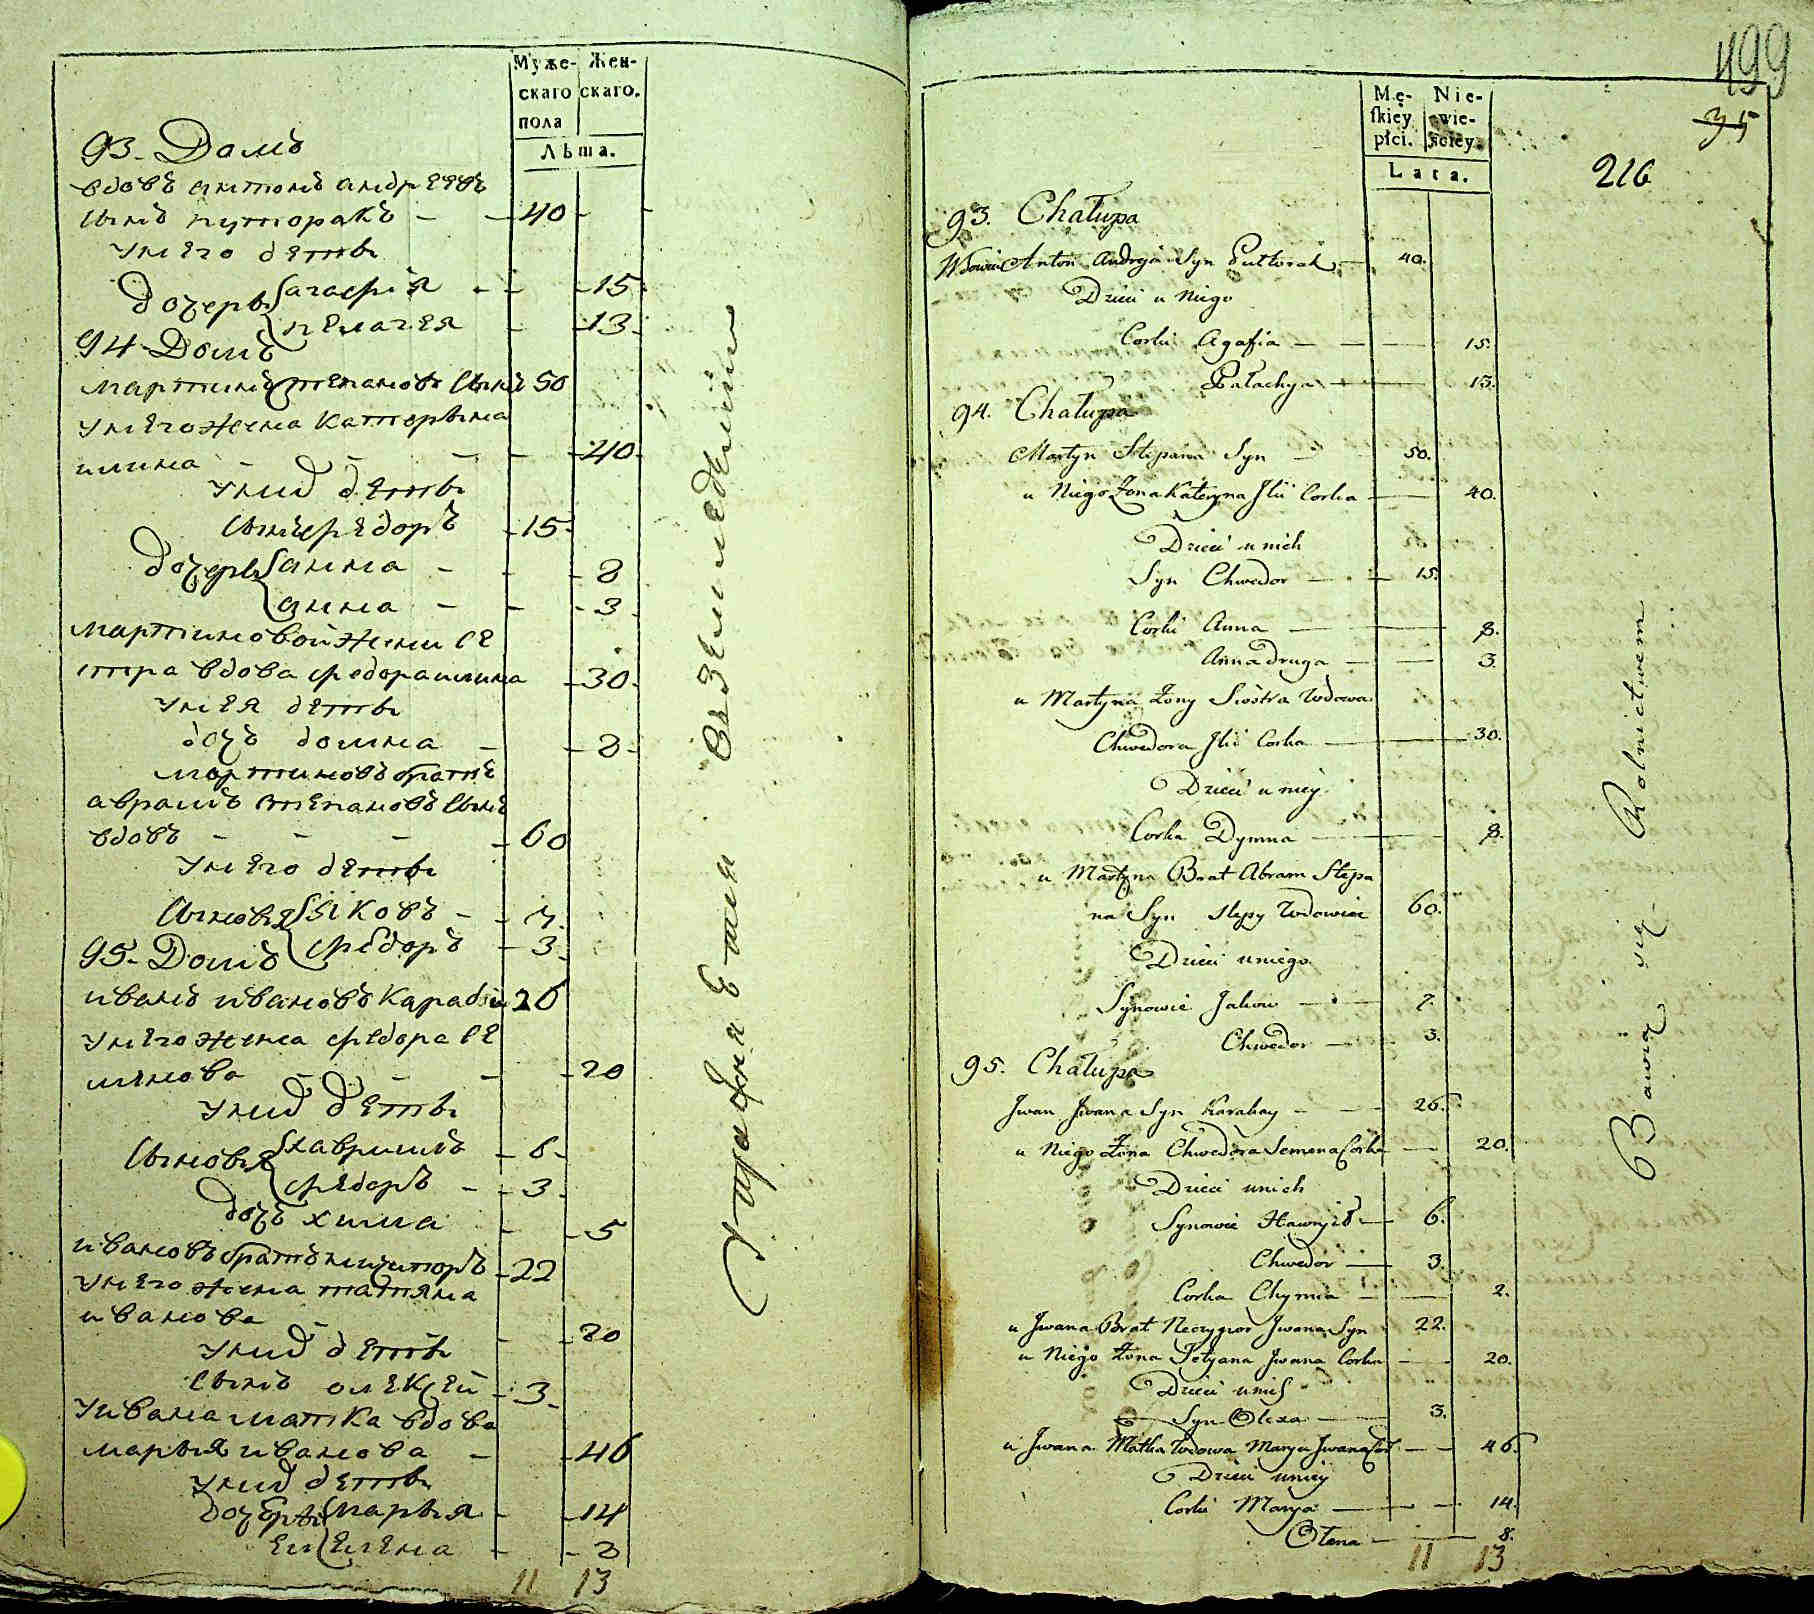 Муже- Жен-
скаго скаго.
пола
Лѣта.
93. Домъ
вдовъ антонъ андрѣевъ
сынъ путоракъ - - 40
у него дети
дочери агафія - - 15
пелагея - 13
94 Домъ
мартинъ степановъ сынъ 50
у него жена катерына
илина - - - - 40
у них дети
сынъ федоръ 15
дочери анна - - 8
анна - - 3
мартиновой жени се
стра вдова федора илина 30
у нея дети
дочъ домна - 8
мартиновъ братъ
аврамъ степановъ сынъ
вдовъ - - - 60
у него дети
сыновя яковъ - - 7
федоръ - 3
95. Домъ
иванъ ивановъ карабай 26
у него жена федора се
менова - - - 20
у них дети
сыновя гавриилъ - 6
федоръ - - 3
дочъ химиа - 5
ивановъ братъ ничипоръ 22
у него жена татяна
иванова - - 20
у них дети
сынъ олексей 3
у ивана матка вдова
марья иванова - 46
у них дети
дочери марья - 14
елена - - 8
11 13
Упражняется в земледелии
499
35
216
Mę- Nie-
skiey wie-
płci. sciey.
Lata.
93. Chałupa
Wdowiec Anton Andreja Syn Puttorak 40.
Dzieci u Niego
Corki Agafia — — 15.
Pałachya — 13.
94. Chałupa
Martyn Stepana Syn — 50.
u Niego Żona Kateryna Jlii Corka — 40.
Dzieci u nich
Syn Chwedor — — 15.
Corki Anna — 8.
Anna druga — — 3.
u Martyna Żony Siostra Wdowa
Chwedora Jlii Corka — 30.
Dzieci u niey
Corka Dymna — 8.
u Martyna Brat Abram Stepa
na Syn slepy Wdowiec 60.
Dzieci u niego
Synowie Jakow — 7.
Chwedor — 3.
95. Chałupa
Jwan Jwana Syn Karabay — 26.
u Niego Żona Chwedora Semena Corka — 20.
Dzieci u nich
Synowie Hawryło — 6.
Chwedor — 3.
Corka Chymia — 2.
u Jwana Brat Neczypor Jwana Syn 22.
u Niego Żona Tetyana Jwana Corka — 20.
Dzieci u nich
Syn Olexa — 3.
u Jwana Matka Wdowa Marya Jwana Cor — 46.
Dzieci u niey
Corki Marya — — 14.
Ołena — 8.
11 13
Bawią się Rolnictwem